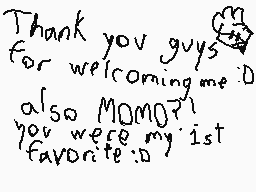 Thank you guys
for welcoming me :D
also MOMO??
you were my 1st
favorite :D